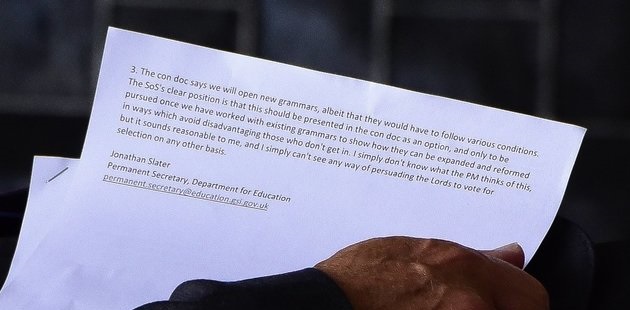 3. The con doc says we will open new grammars, albeit that they would have to follow various conditions.
The SoS's clear position is that this should be presented in the con doc as an option, and only to be
pursued once we have worked with existing grammars to show how they can be expanded and reformed
in ways which avoid disadvantaging those who don't get in. I simply don't know what the PM thinks of this,
but it sounds reasonable to me, and I simply can't see any way of persuading the Lords to vote for
selection on any other basis.
Jonathan Slater
Permanent Secretary, Department for Education
permanent.secretary@education.gsi.gov.uk